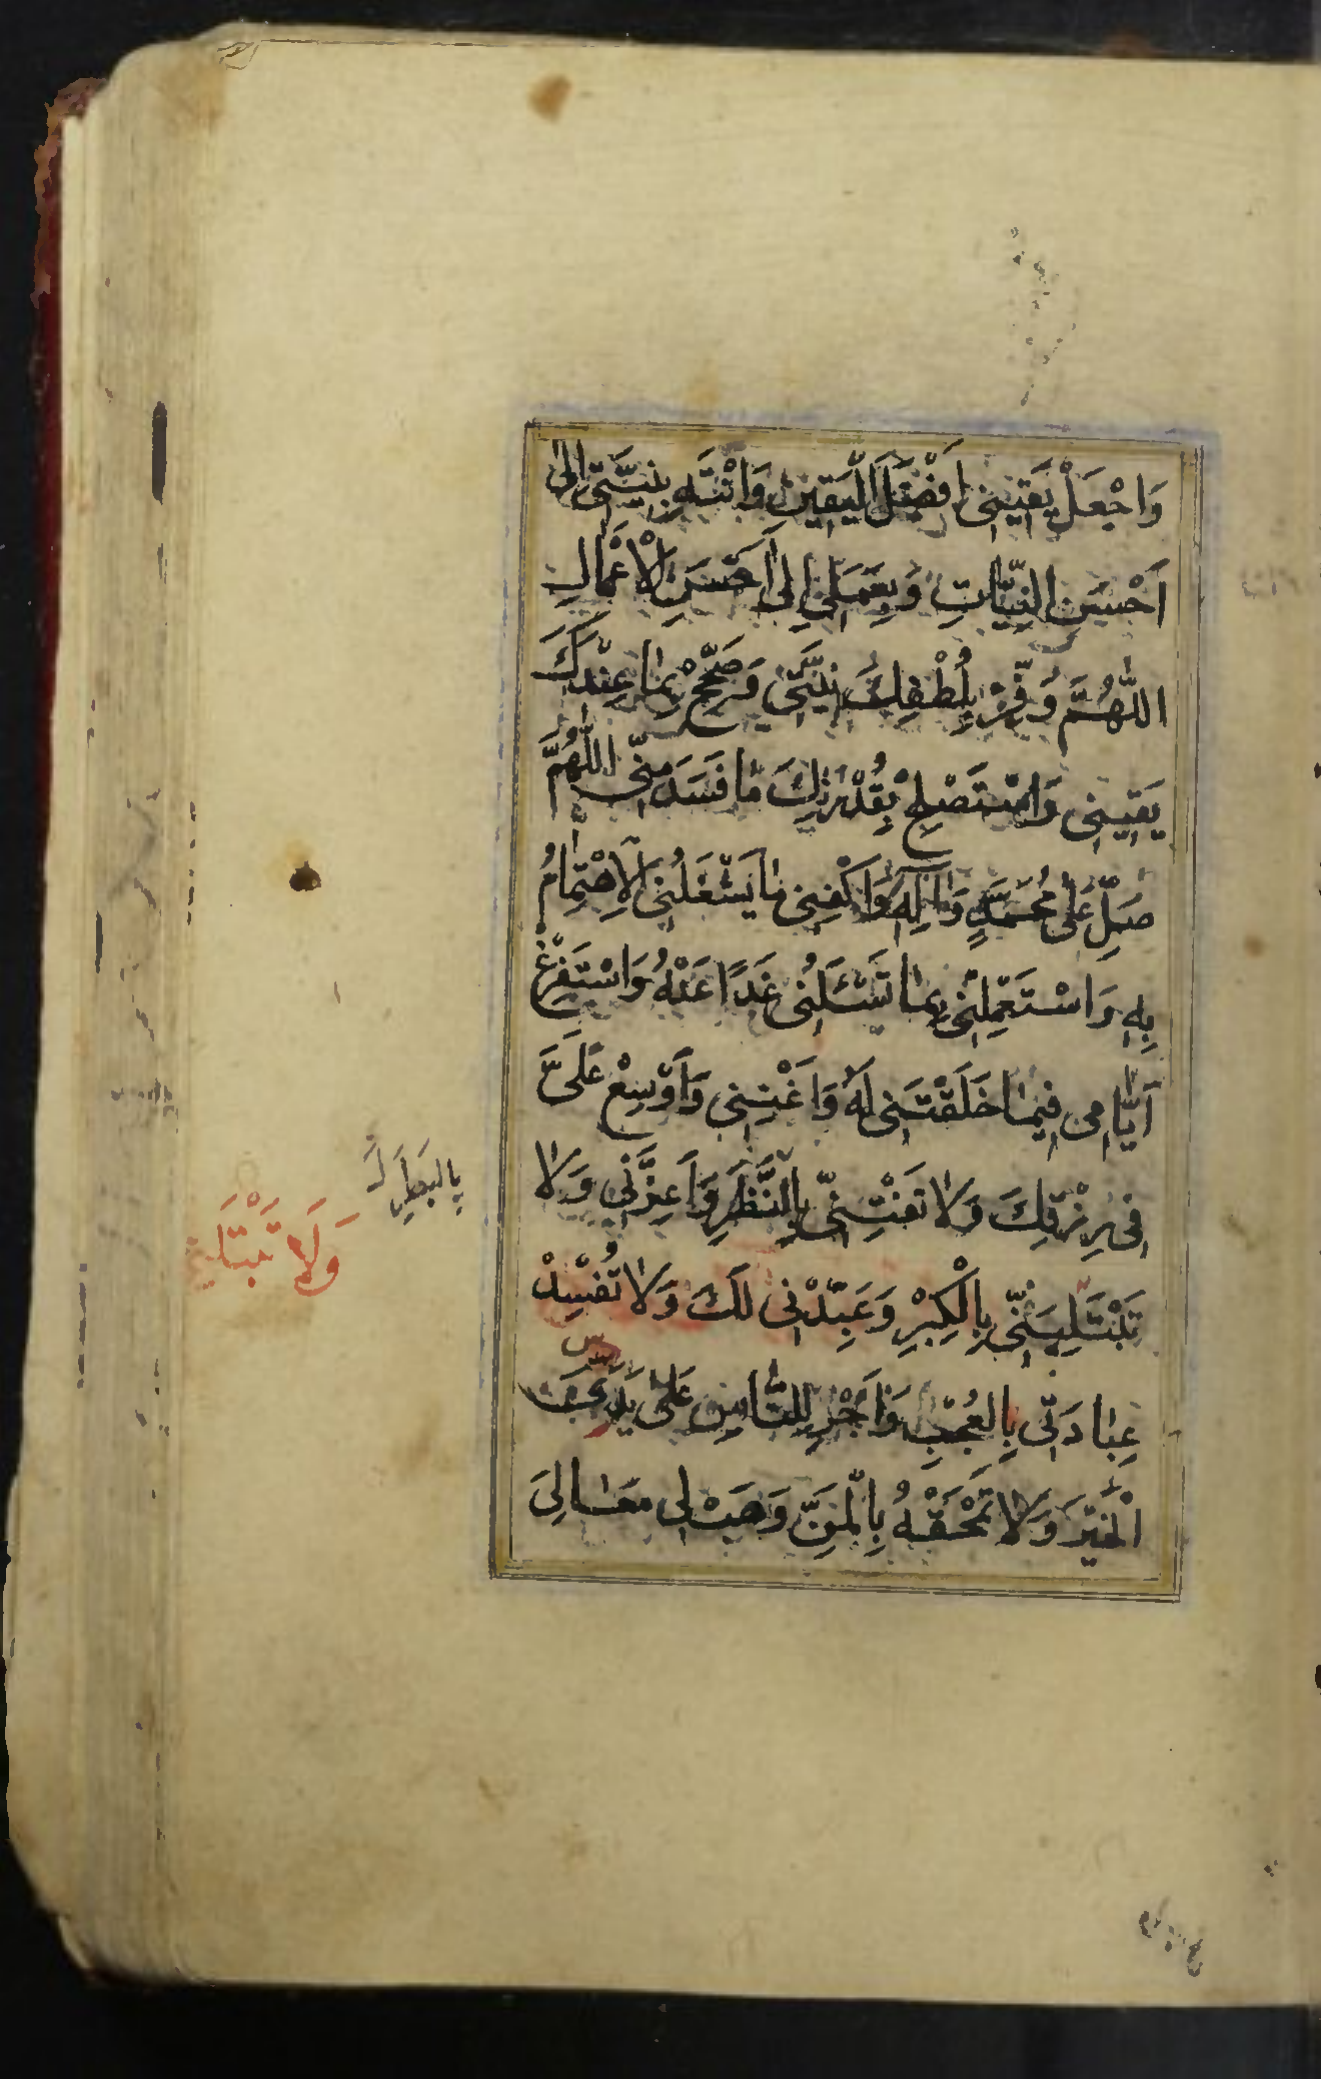 وَاجْعَلْ يَقِينِى اَفْضَلَ الْيَقِينِ وَانْتَهِ بِنِيَّتِى اِلٰى
اَحْسَنِ النِّيَّاتِ وَبِعَمَلِى اِلٰى اَحْسَنِ الْاَعْمَالِ
اللّٰهُمَّ وَفِّرْ بِلُطْفِكَ نِيَّتِى وَصَحِّحْ بِمَا عِنْدَكَ
يَقِينِى وَاسْتَصْلِحْ بِقُدْرَتِكَ مَا فَسَدَ مِنِّى اللّٰهُمَّ
صَلِّ عَلٰى مُحَمَّدٍ وَاٰلِهِ وَاكْفِنِى مَا يَشْغَلُنِى الْاِهْتِمَامُ
بِهِ وَاسْتَعْمِلْنِى بِمَا تَسْئَلُنِى غَدًا عَنْهُ وَاسْتَفْرِغْ
اَيَّامِى فِيمَا خَلَقْتَنِى لَهُ وَاَغْنِنِى وَاَوْسِعْ عَلَىَّ
فِى رِزْقِكَ وَلَا تَفْتِنِّى بِالنَّظَرِ وَاَعِزَّنِى وَلَا
تَبْتَلِيَنِّى بِالْكِبْرِ وَعَبِّدْنِى لَكَ وَلَا تُفْسِدْ
عِبَادَتِى بِالْعُجْبِ وَاَجْرِ لِلنَّاسِ عَلٰى يَدَىَّ
الْخَيْرَ وَلَا تَمْحَقْهُ بِالْمَنِّ وَهَبْ لِى مَعَالِىَ
بِالبَطَرِ
وَلَا تَبْتَلِيَ